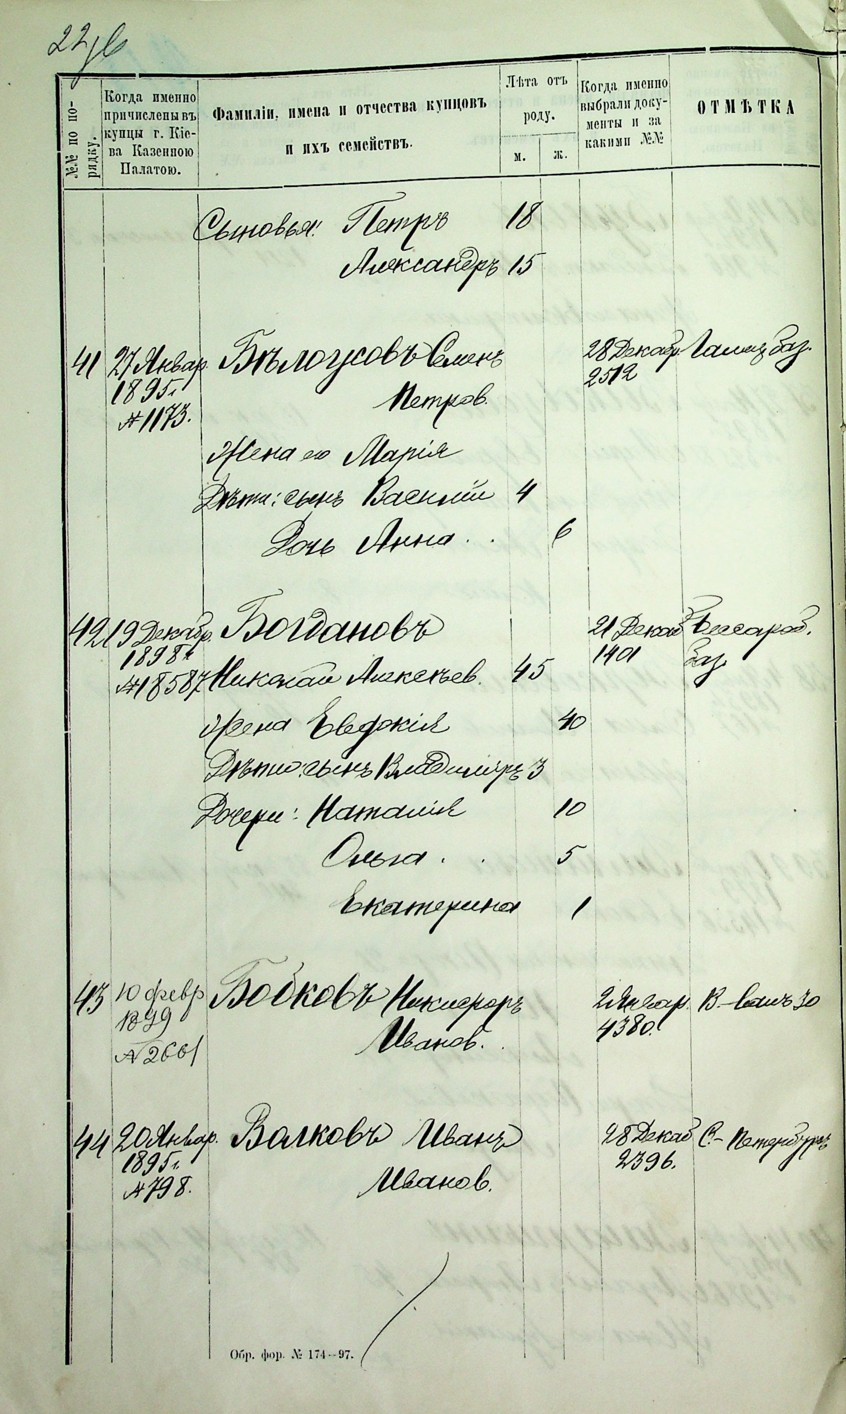 №№ по по-
рядку.
Когда именно
причислены въ
купцы г. Кіе-
ва Казенною
Палатою.
Фамиліи, имена и отчества купцовъ
и ихъ семействъ.
Лѣта отъ
роду.
м.
ж.
Когда именно
выбрали доку-
менты и за
какими №№
ОТМѢТКА
Сыновья: Петръ 18
Александръ 15
41 27 Январ. Бѣлоусовъ Семенъ 28 Декабр. баз.
1895 г. Петров. 2512
№ 1173.
Жена его Марія
Дѣти: сынъ Василій 4
Дочь Анна . . 6
42 19 Декабр. Богдановъ 21 Декаб Бессараб.
1898 г. 1401 баз.
№ 18587 Николай Алексѣев. 45
Жена Евдокія 40
Дѣти: сынъ Владиміръ 3
Дочери: Наталія 10
Ольга . . 5
Екатерина 1
43 10 февр Бобковъ Никифоръ 2 Январ. 30
1899 Иванов. 4380.
№ 2661
44 20 Январ. Волковъ Иванъ 28 Декаб С.-Петербургъ
1895 г. Иванов. 2396.
№ 798.
Обр. фор. № 174—97.